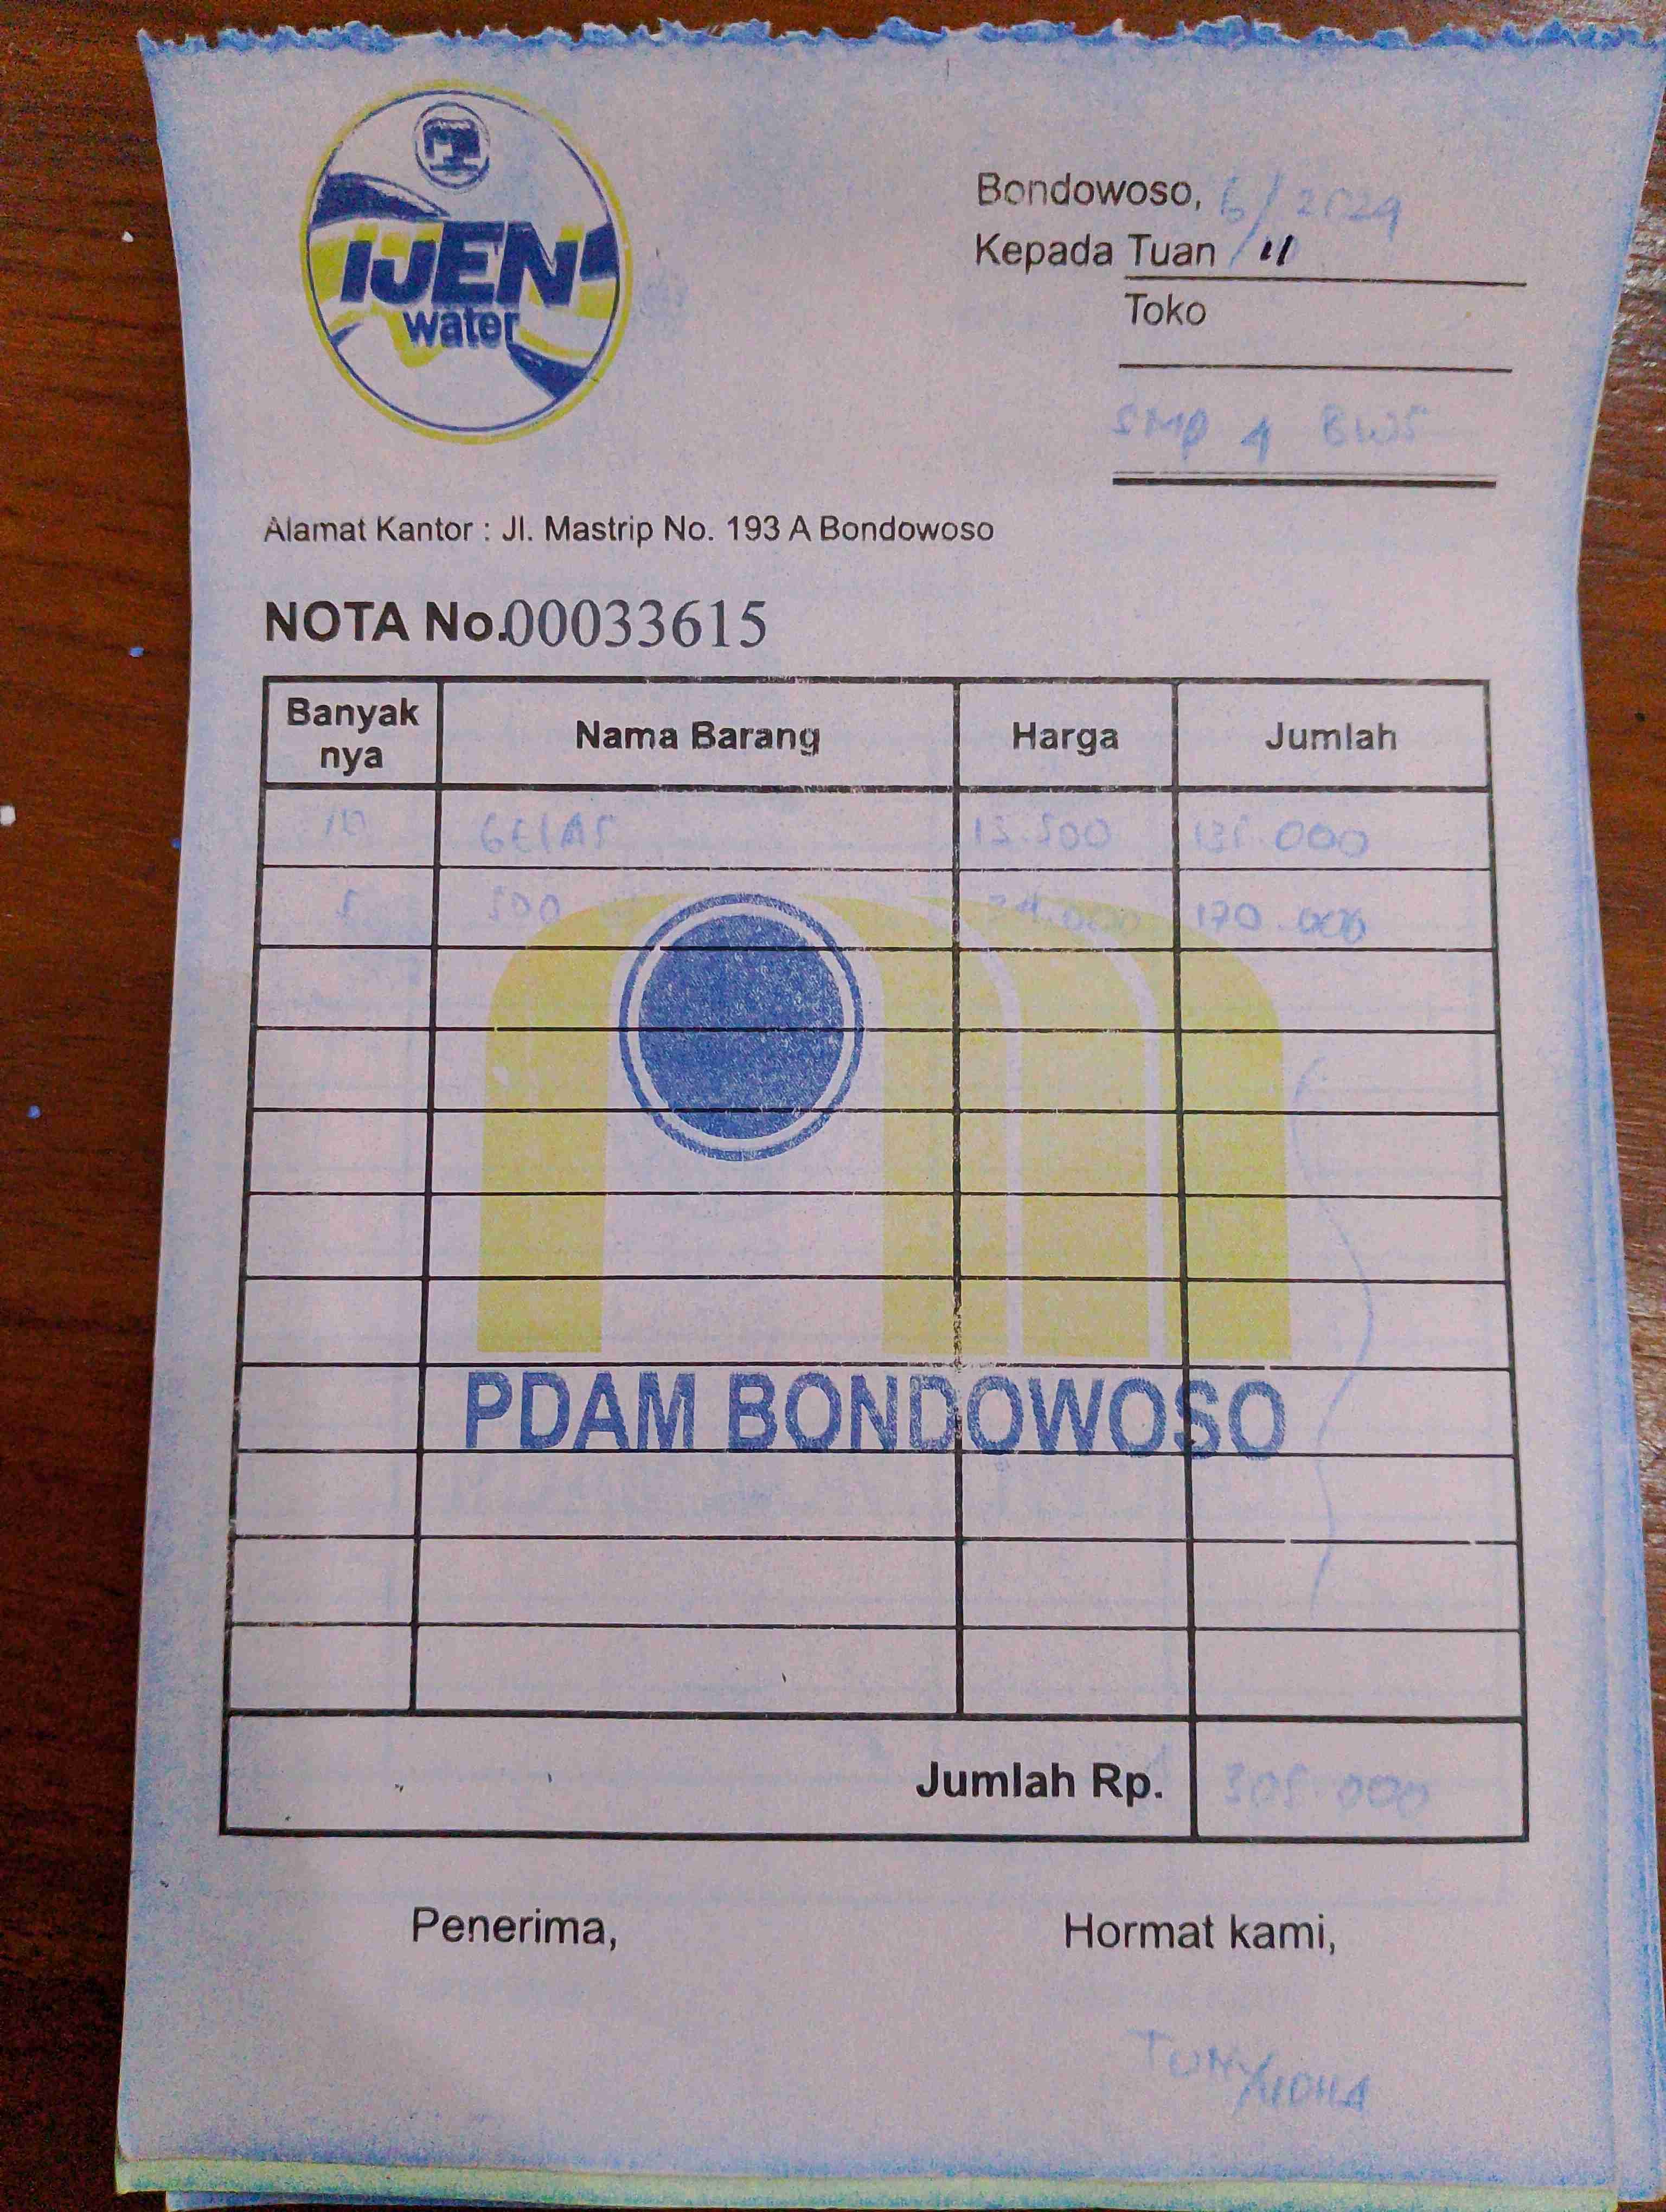 IJEN
water
Bondowoso, 6/2024
Kepada Tuan / 11
Toko
SMP 4 BWS
Alamat Kantor : Jl. Mastrip No. 193 A Bondowoso
NOTA No.00033615
Banyak nya Nama Barang Harga Jumlah
10 GELAS 13.500 135.000
5 500 34.000 170.000
PDAM BONDOWOSO
Jumlah Rp. 305.000
Penerima, Hormat kami,